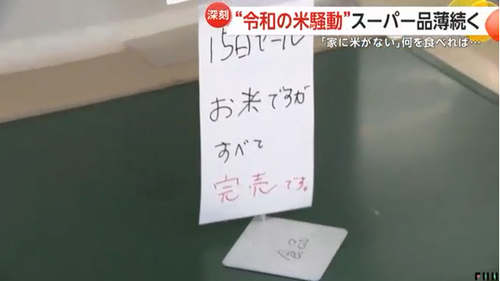 深刻
“令和の米騒動”スーパー品薄続く
「家に米がない」何を食べれば…
15日セール
お米ですが
すべて
完売です。